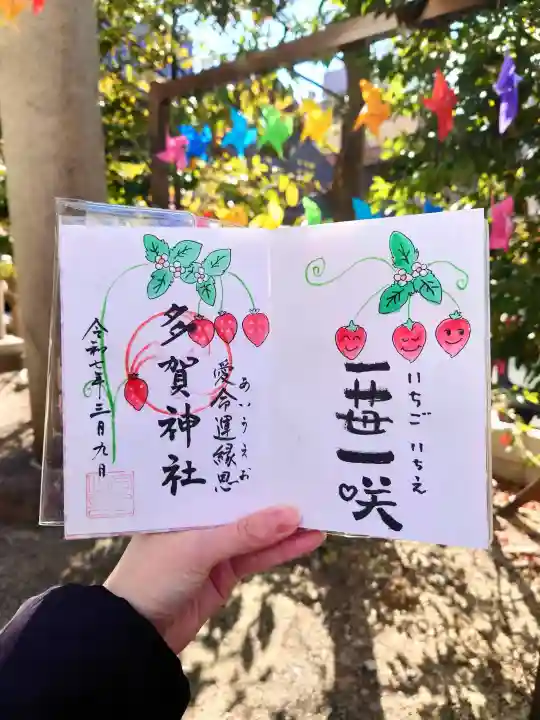 一苺一咲
いちごいちえ
多賀神社
あいうえお
愛命運縁恩
令和七年三月九日